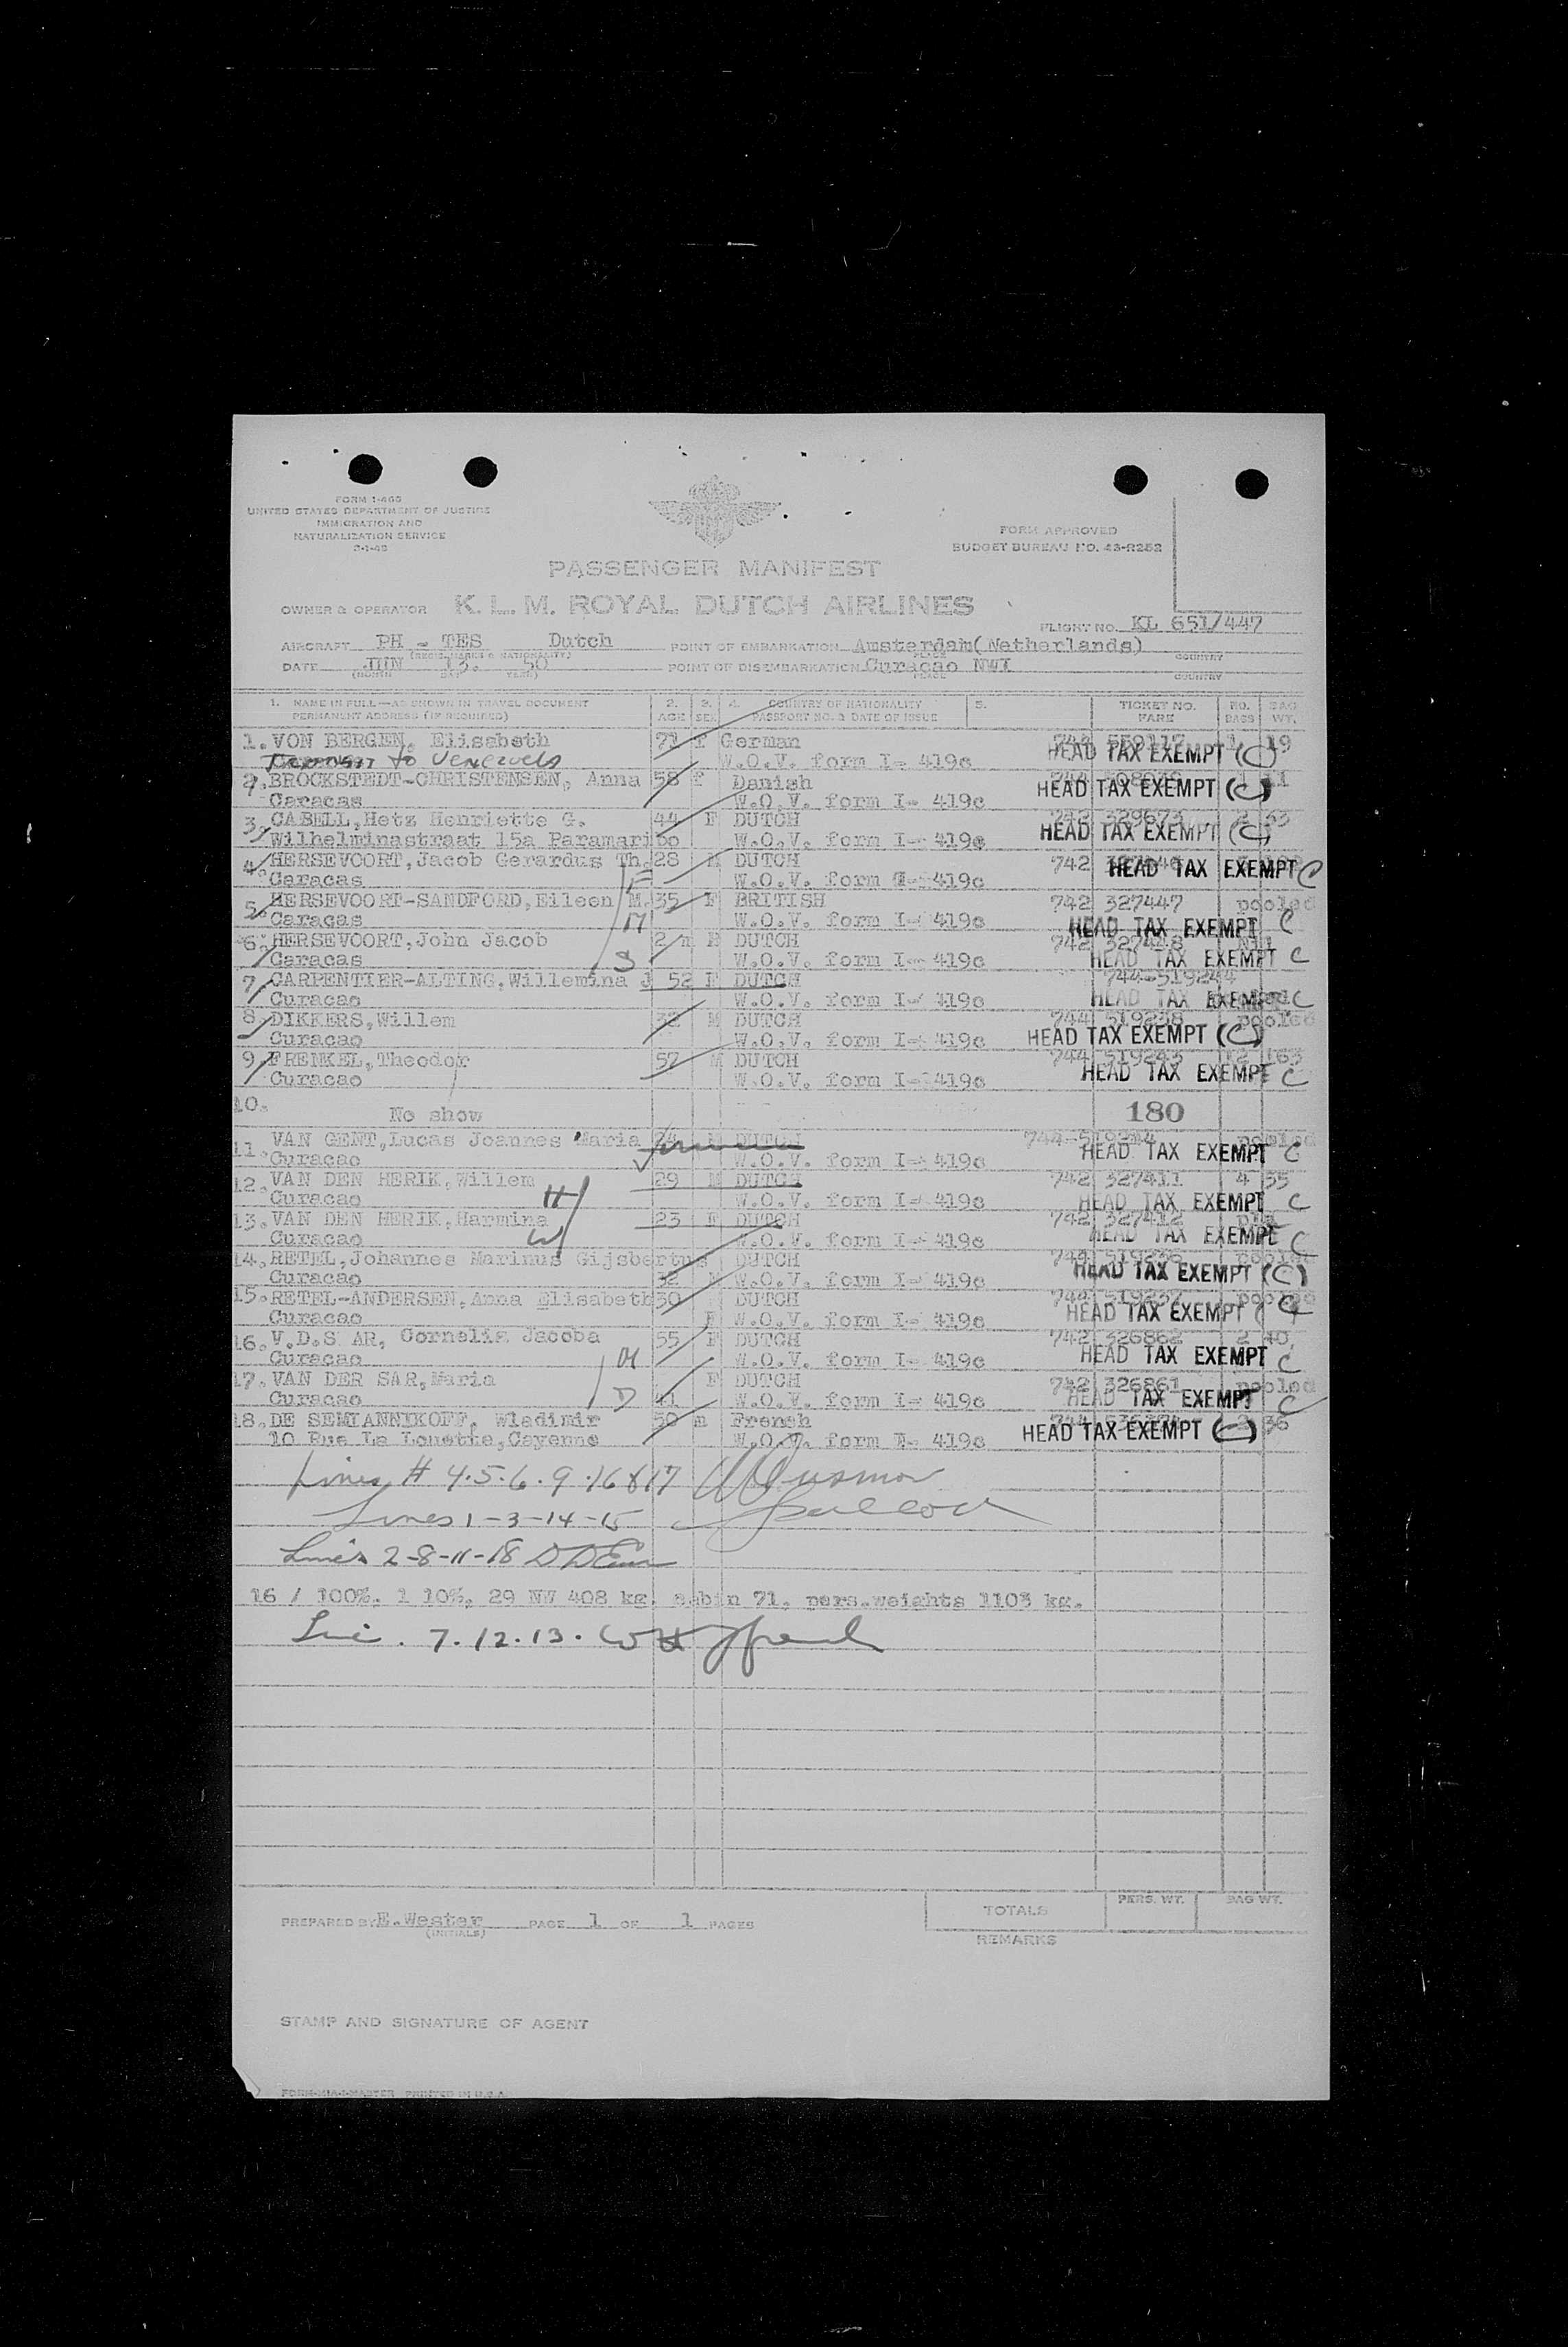 FORM I-466
UNITED STATES DEPARTMENT OF JUSTICE
IMMIGRATION AND
NATURALIZATION SERVICE
FORM APPROVED
BUDGET BUREAU NO. 43-R252
PASSENGER MANIFEST
OWNER & OPERATOR K. L. M. ROYAL DUTCH AIRLINES
FLIGHT NO. KL 651/447
AIRCRAFT PH - TES Dutch POINT OF EMBARKATION Amsterdam(Netherlands)
DATE JUN 13. 50 POINT OF DISEMBARKATION Curaçao NWI
(MONTH DAY YEAR) PLACE COUNTRY
1. NAME IN FULL—AS SHOWN IN TRAVEL DOCUMENT 2. 3. 4. COUNTRY OF NATIONALITY 5. TICKET NO. NO. BAG
PERMANENT ADDRESS (IF REQUIRED) AGE SEX PASSPORT NO. & DATE OF ISSUE FARE BAGS WT.
1. VON BERGEN, Elisabeth 71 f German 19
to Venezuela W.O.V. form I- 419c HEAD TAX EXEMPT (C)
2. BROCKSTEDT-CHRISTENSEN, Anna 58 f Danish
Caracas W.O.V. form I- 419c HEAD TAX EXEMPT (C)
3. CABELL, Hetz Henriette G. 44 F DUTCH 742 329673 2 33
Wilhelminastraat 15a Paramaribo W.O.V. form I- 419c HEAD TAX EXEMPT (C)
4. HERSEVOORT, Jacob Gerardus Th. 28 M DUTCH 742 HEAD TAX EXEMPT C
Caracas F W.O.V. form I- 419c
5. HERSEVOORT-SANDFORD, Eileen M. 35 F BRITISH 742 327447 pooled
Caracas M W.O.V. form I- 419c HEAD TAX EXEMPT C
6. HERSEVOORT, John Jacob 2 m M DUTCH 742 327448
Caracas S W.O.V. form I- 419c HEAD TAX EXEMPT C
7. CARPENTIER-ALTING, Willemina J 52 F DUTCH 744-519244
Curacao W.O.V. form I- 419c HEAD TAX EXEMPT C
8. DIKKERS, Willem 32 M DUTCH 744 519238 pooled
Curacao W.O.V. form I- 419c HEAD TAX EXEMPT (C)
9. FRENKEL, Theodor 57 M DUTCH 744 519243 12 163
Curacao W.O.V. form I- 419c HEAD TAX EXEMPT C
10. No show 180
11. VAN GENT, Lucas Joannes Maria 24 M DUTCH pooled
Curacao W.O.V. form I- 419c HEAD TAX EXEMPT C
12. VAN DEN HERIK, Willem 29 M DUTCH 742 327411 4 55
Curacao H W.O.V. form I- 419c HEAD TAX EXEMPT C
13. VAN DEN HERIK, Harmina 23 F DUTCH 742 327412
Curacao W W.O.V. form I- 419c HEAD TAX EXEMPT C
14. RETEL, Johannes Marinus Gijsbertus DUTCH 744 519236 pooled
Curacao 32 M W.O.V. form I- 419c HEAD TAX EXEMPT (C)
15. RETEL-ANDERSEN, Anna Elisabeth 30 DUTCH 744 519237 pooled
Curacao F W.O.V. form I- 419c HEAD TAX EXEMPT C
16. V.D.S AR, Cornelia Jacoba 55 F DUTCH 742 326862 2 40
Curacao M W.O.V. form I- 419c HEAD TAX EXEMPT C
17. VAN DER SAR, Maria F DUTCH 742 326861 pooled
Curacao D 41 W.O.V. form I- 419c HEAD TAX EXEMPT C
18. DE SEMIANNIKOFF, Wladimir 50 m French 36
10 Rue La Louette, Cayenne W.O.V. form I- 419c HEAD TAX EXEMPT (C)
Lines # 4.5.6.9.16&17
Lines 1-3-14-15
Lines 2-8-11-18
16 / 100%. 1 10%, 29 NW 408 kg. cabin 71. pers.weights 1103 kg.
7.12.13.
PREPARED BY E. Wester PAGE 1 OF 1 PAGES
(INITIALS)
TOTALS PERS. WT. BAG WT.
REMARKS
STAMP AND SIGNATURE OF AGENT
PRINTED IN U.S.A.